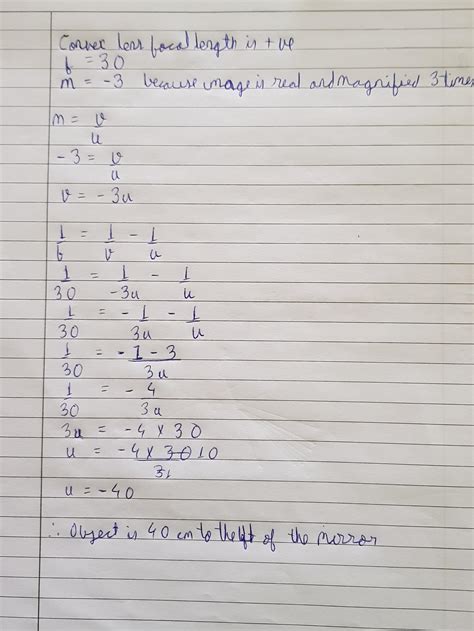 Convex lens focal length is +ve
f = 30
m = -3 because image is real and magnified 3 times
m = v/u
-3 = v/u
v = -3u
1/f = 1/v - 1/u
1/30 = 1/-3u - 1/u
1/30 = -1/3u - 1/u
1/30 = -1-3/3u
1/30 = -4/3u
3u = -4 × 30
u = -4 × 30 10/31
u = -40
∴ Object is 40 cm to the left of the mirror